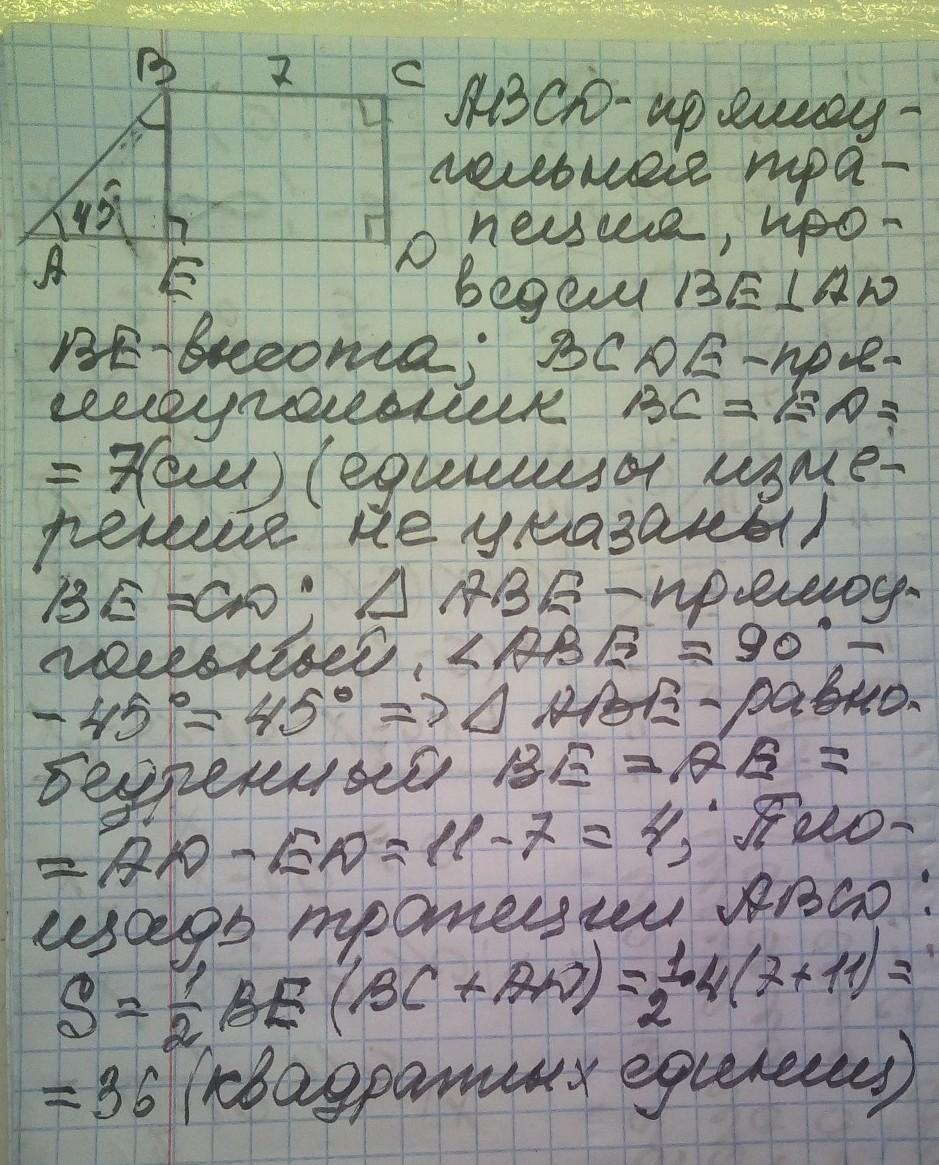 B 7 C
45°
A E D
ABCD - прямоу-
гольная тра-
пеция, про-
ведем BE⊥AD
BE - высота; BCDE - пря-
моугольник BC = ED =
= 7(см) (единицы изме-
рения не указаны)
BE = CD; △ ABE - прямоу-
гольный, ∠ABE = 90° -
- 45° = 45° => △ ABE - равно-
бедренный BE = AE =
= AD - ED = 11 - 7 = 4; Пло-
щадь трапеции ABCD:
S = 1/2 BE (BC + AD) = 1/2 · 4 (7 + 11) =
= 36 (квадратных единиц)